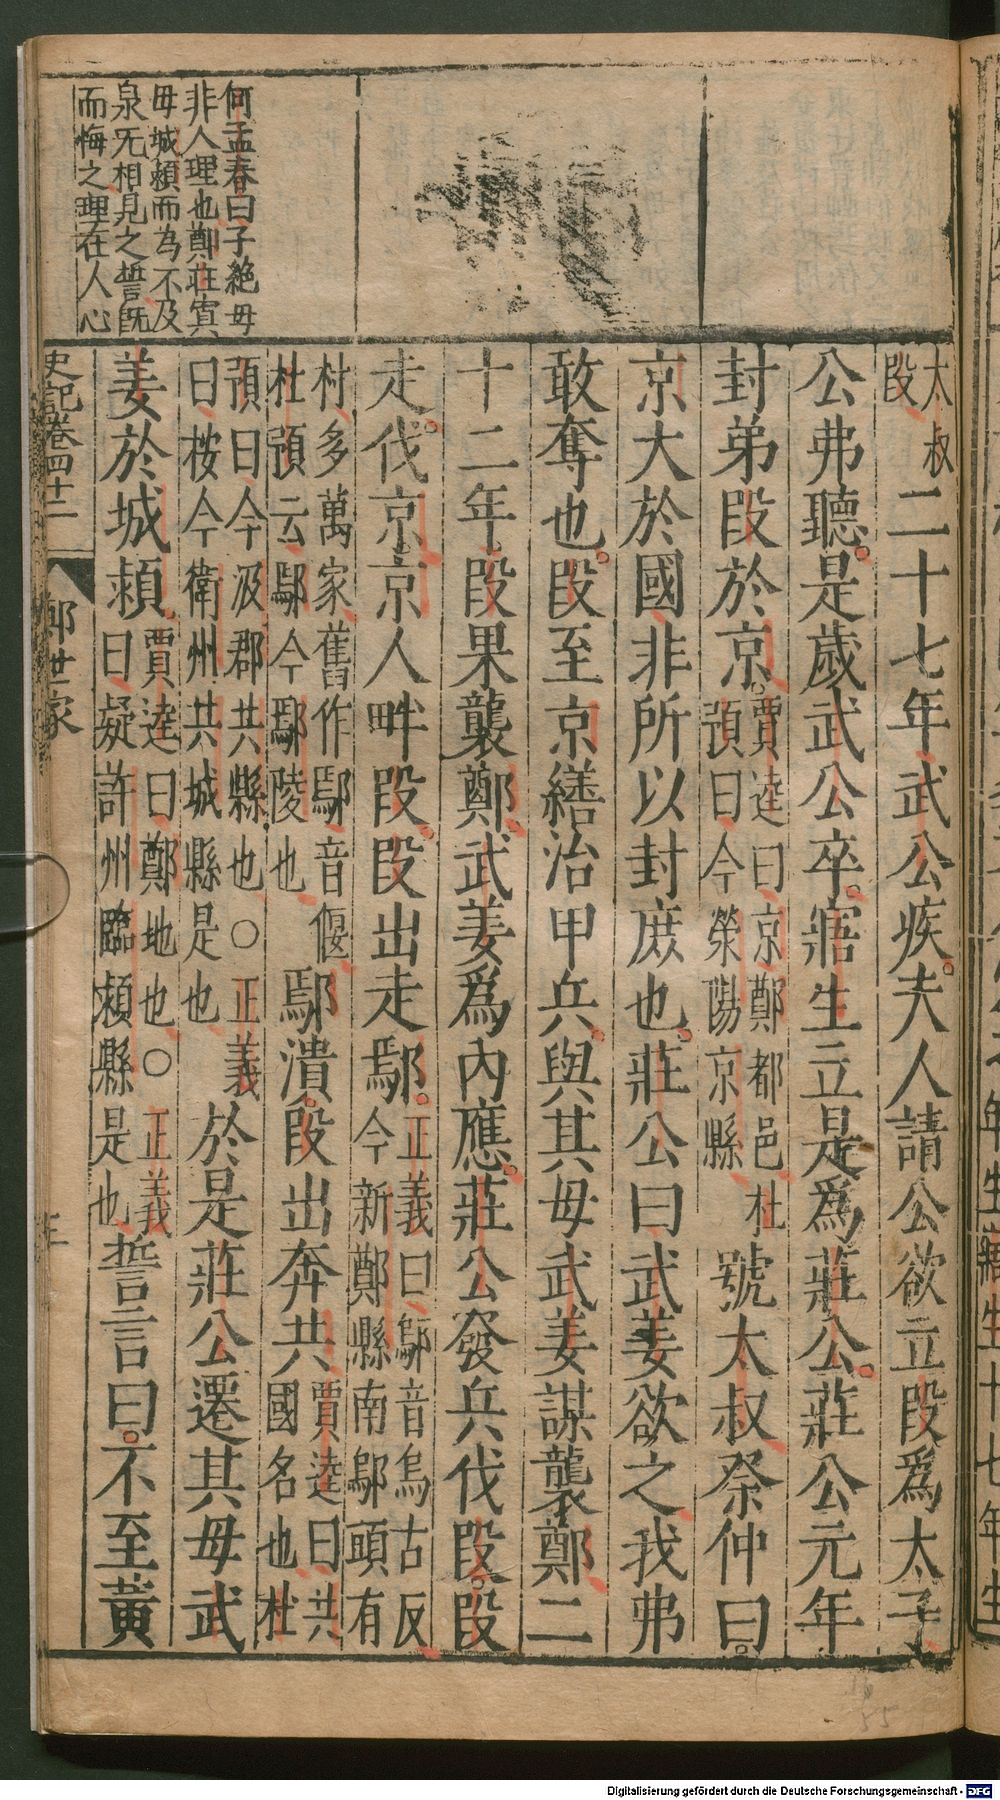 何孟春曰子絶母
非人理也鄭莊寘
母城潁而為不及
泉旡相見之誓旣
而悔之理在人心
太叔
段
二十七年武公疾夫人請公欲立段爲太子
公弗聽是歲武公卒寤生立是爲莊公莊公元年
封弟段於京
賈逵曰京鄭都邑杜
預曰今滎陽京縣
號太叔祭仲曰
京大於國非所以封庶也莊公曰武姜欲之我弗
敢奪也段至京繕治甲兵與其母武姜謀襲鄭二
十二年段果襲鄭武姜爲內應莊公發兵伐段段
走伐京京人畔段段出走鄢
正義曰鄔音烏古反
今新鄭縣南鄔頭有
村多萬家舊作鄢音偃
杜預云鄢今鄢陵也
鄢潰段出奔共
賈逵曰共
國名也杜
預曰今汲郡共縣也〇正義
曰按今衛州共城縣是也
於是莊公遷其母武
姜於城潁
賈逵曰鄭地也〇正義
曰疑許州臨潁縣是也
誓言曰不至黃
史記卷四十二
鄭世家
三
Digitalisierung gefördert durch die Deutsche Forschungsgemeinschaft - DFG